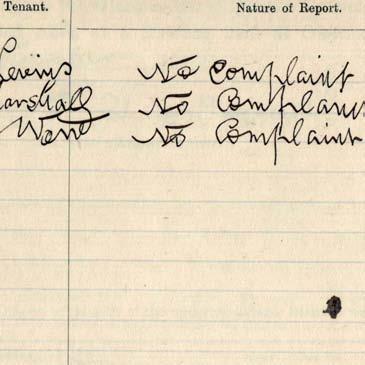 Tenant. Nature of Report.
No Complaint
arshall No Complain
No Complaint